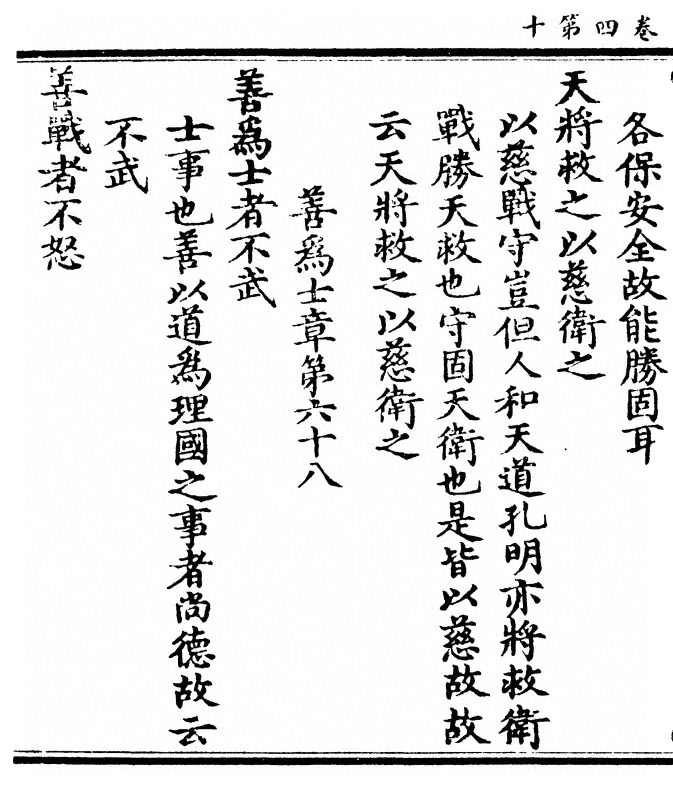 卷四第十
各保安全故能勝固耳
天將救之以慈衛之
以慈戰守豈但人和天道孔明亦將救衛
戰勝天救也守固天衛也是皆以慈故故
云天將救之以慈衛之
善爲士章第六十八
善爲士者不武
士事也善以道爲理國之事者尚德故云
不武
善戰者不怒